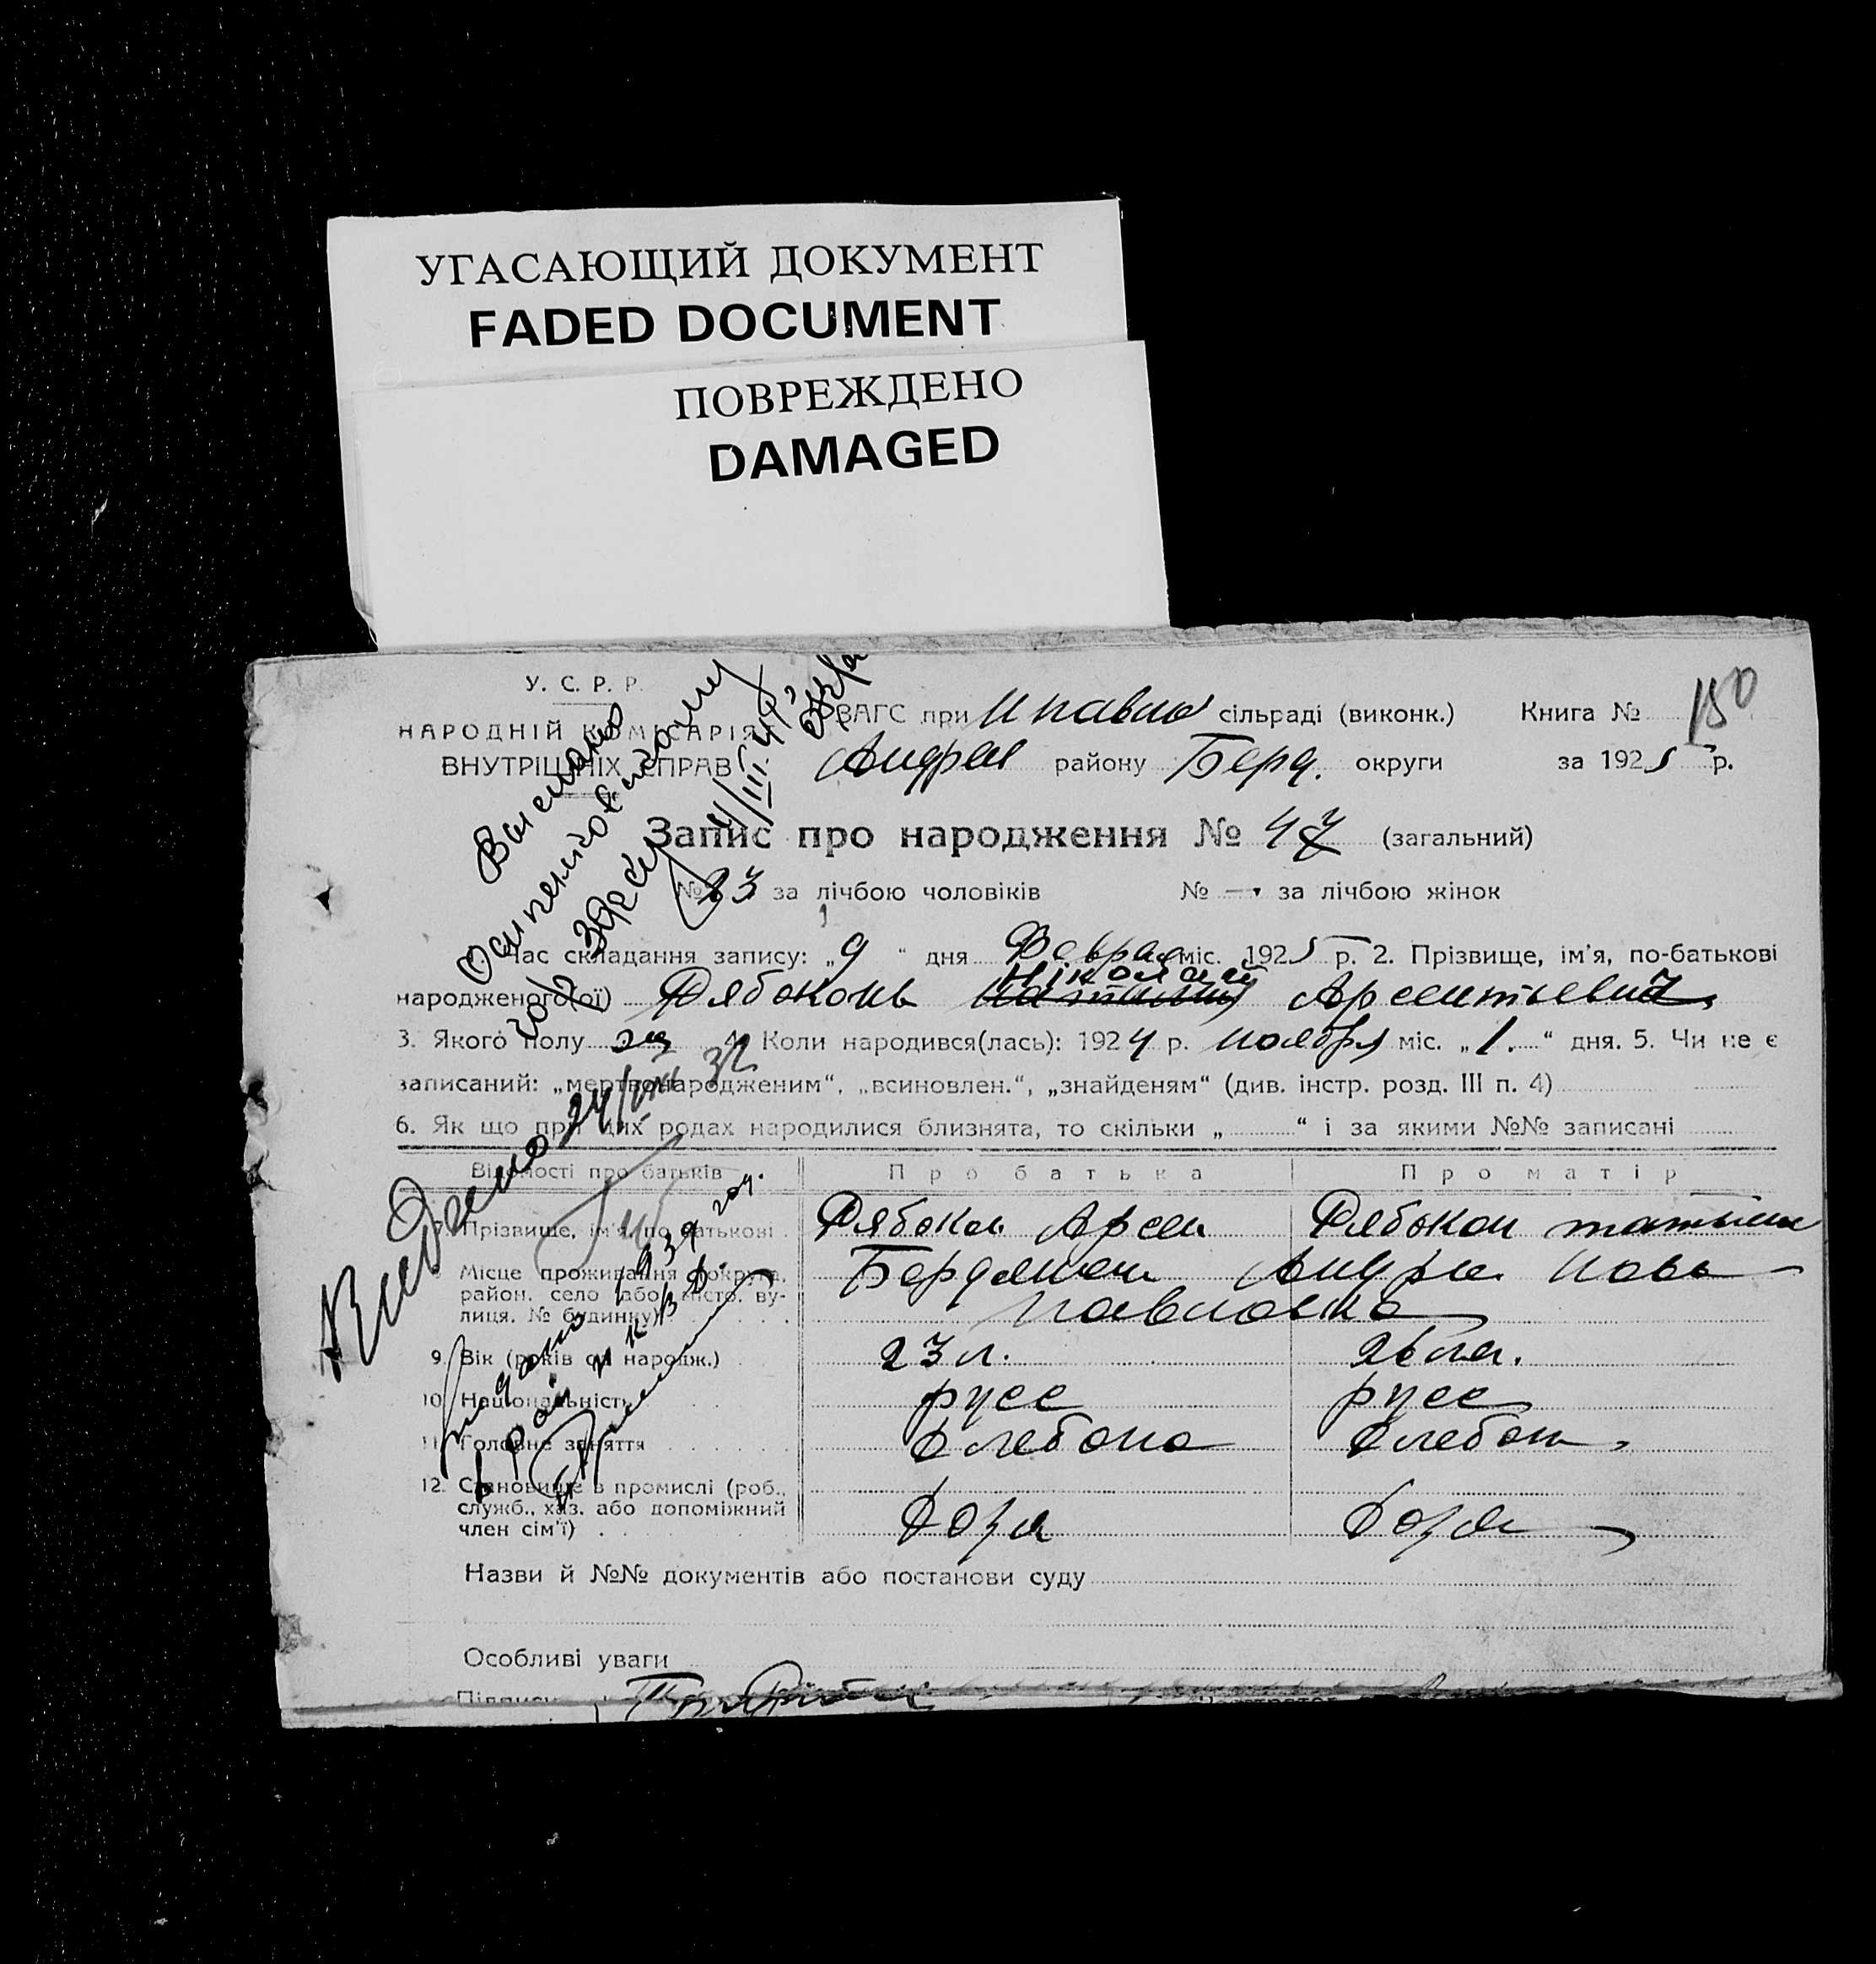 УГАСАЮЩИЙ ДОКУМЕНТ
FADED DOCUMENT
ПОВРЕЖДЕНО
DAMAGED
150
У. С. Р. Р.
НАРОДНІЙ КОМІСАРІЯ
ВНУТРІШНІХ СПРАВ
ЗАГС при Н павло сільраді (виконк.) Книга №
Андрее району Берд. округи за 1925 р.
Запис про народження № 47 (загальний)
№ 23 за лічбою чоловіків № — за лічбою жінок
1. Час складання запису: „9“ дня Феврал міс. 1925 р. 2. Прізвище, ім'я, по-батькові
Ніколай
народженого(ої) Рябоконь Арсентьевич
3. Якого полу 4. Коли народився(лась): 1924 р. ноября міс. „1.“ дня. 5. Чи не є
записаний: „мертвонародженим“, „всиновлен.“, „знайденям“ (див. інстр. розд. III п. 4)
6. Як що при цих родах народилися близнята, то скільки „ “ і за якими №№ записані
Відомості про батьків Про батька Про матір
7. Прізвище, ім'я, по батькові Рябокон Арсен Рябокон татьян
8. Місце проживання (округа, Бердянск Андре ново
район, село або місто, ву- павловка
лиця, № будинку)
9. Вік (років од народж.) 23 л. 26 л.
10. Національність русс русс
11. Головне заняття хлебопа хлебоп
12. Становище в промислі (роб.,
служб., хаз. або допоміжний хозя хозя
член сім'ї)
Назви й №№ документів або постанови суду
Особливі уваги
Підписи
Выслано
Осипенковскому
4/III-41
Видано 24/VIII 32
Видано 1939 год